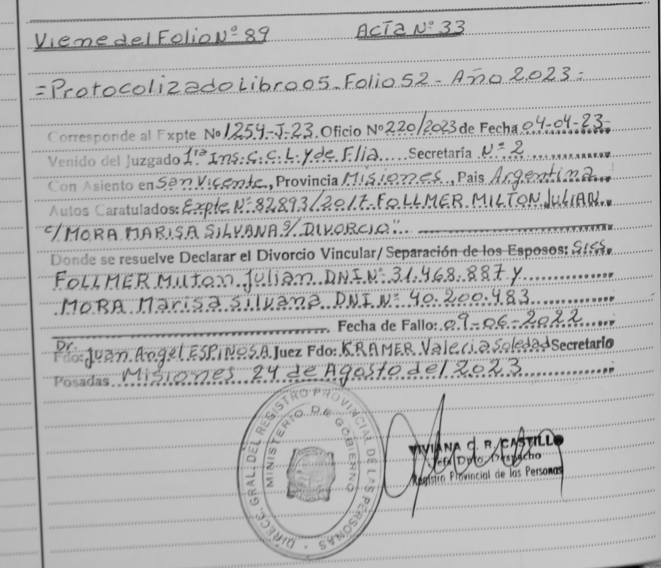 Viene del Folio Nº 89 Acta Nº 33
=Protocolizado Libro 05- Folio 52- Año 2023=
Corresponde al Expte Nº 1254-J-23. Oficio Nº 220/2023 de Fecha 04-04-23.
Venido del Juzgado 1ra Ins. C.C.L. y de Flia..... Secretaría Nº 2 ............
Con Asiento en San Vicente., Provincia Misiones., Pais Argentina..
Autos Caratulados: Expte Nº 82893/2017. FOLLMER MILTON JULIAN.
c/ MORA MARISA SILVANA S/ DIVORCIO".
Donde se resuelve Declarar el Divorcio Vincular/ Separación de los Esposos: Sres.
FOLLMER Milton Julian DNI Nº 31.468.887 y
MORA Marisa Silvana DNI Nº 40.200.483
Fecha de Fallo: 09-06-2022
Dr.
Fdo: Juan Angel ESPINOSA Juez Fdo: KRAMER Valeria Soledad Secretario
Posadas Misiones 24 de Agosto del 2023
DIRECC. GRAL. DEL REGISTRO PROVINCIAL DE LAS PERSONAS
MINISTERIO DE GOBIERNO
VIVIANA C. R. CASTILLO
Jefa Dpto. Despacho
Registro Provincial de las Personas